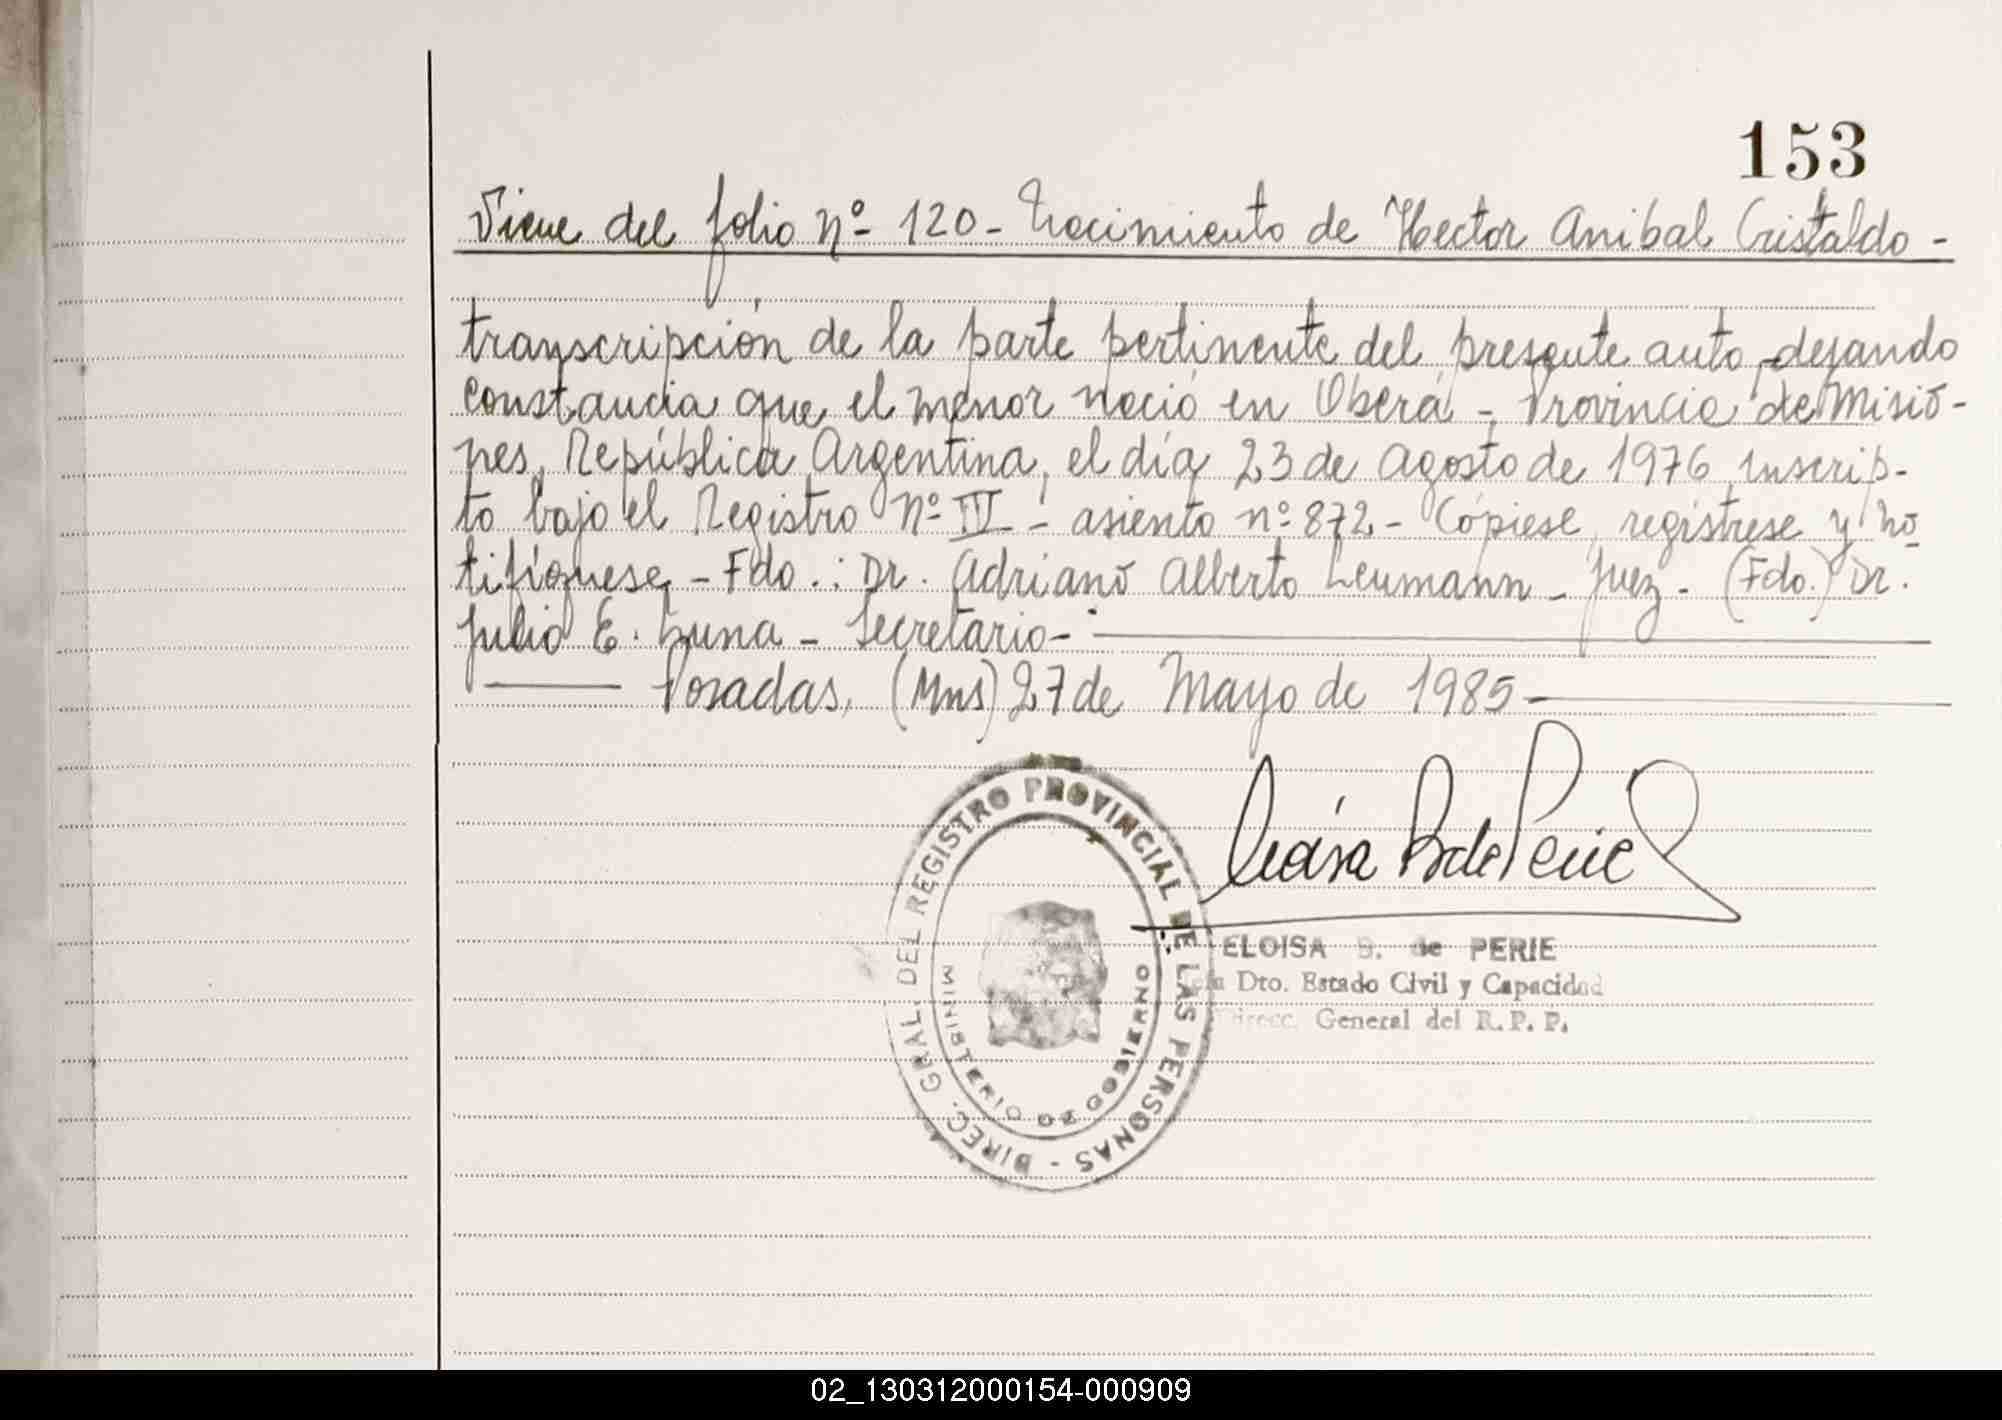 153
Viene del folio Nº 120 - Nacimiento de Hector Anibal Cristaldo -
transcripción de la parte pertinente del presente auto, dejando
constancia que el menor nació en Oberá - Provincia de Misio-
nes, República Argentina, el día 23 de Agosto de 1976, inscrip-
to bajo el Registro Nº III - asiento nº 872 - Cópiese, regístrese y no-
tifíquese - Fdo.: Dr. Adriano Alberto Leumann - Juez - (Fdo.) Dr.
Julio E. Luna - Secretario -
Posadas, (Mns) 27 de Mayo de 1985 -
DIREC. GRAL. DEL REGISTRO PROVINCIAL DE LAS PERSONAS -
MINISTERIO DE GOBIERNO
ELOISA B. de PERIE
Dto. Estado Civil y Capacidad
Direcc. General del R. P. P.
02_130312000154-000909